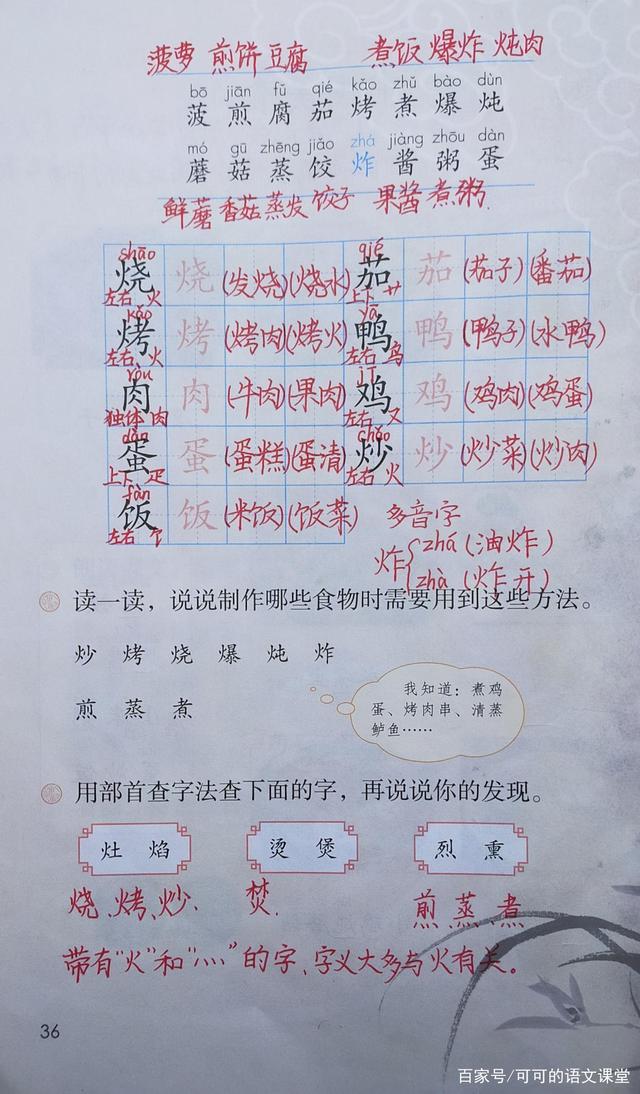 菠萝 煎饼 豆腐 煮饭 爆炸 炖肉
bō jiān fǔ qié kǎo zhǔ bào dùn
菠 煎 腐 茄 烤 煮 爆 炖
mó gū zhēng jiǎo zhá jiàng zhōu dàn
蘑 菇 蒸 饺 炸 酱 粥 蛋
鲜蘑 香菇 蒸发 饺子 果酱 煮粥
shāo qié
烧 烧 (发烧)(烧水) 茄 茄 (茄子)(番茄)
左右 火 上下 艹
kǎo yā
烤 烤 (烤肉)(烤火) 鸭 鸭 (鸭子)(水鸭)
左右 火 左右 鸟
ròu jī
肉 肉 (牛肉)(果肉) 鸡 鸡 (鸡肉)(鸡蛋)
独体 肉 左右 又
dàn chǎo
蛋 蛋 (蛋糕)(蛋清) 炒 炒 (炒菜)(炒肉)
上下 疋 左右 火
fàn
饭 饭 (米饭)(饭菜)
左右 饣
多音字
炸 zhá (油炸)
zhà (炸开)
读一读，说说制作哪些食物时需要用到这些方法。
炒 烤 烧 爆 炖 炸
煎 蒸 煮
我知道：煮鸡
蛋、烤肉串、清蒸
鲈鱼……
用部首查字法查下面的字，再说说你的发现。
灶 焰 烫 煲 烈 熏
烧、烤、炒、 焚、 煎、蒸、煮
带有“火”和“灬”的字、字义大多与火有关。
36
百家号/可可的语文课堂